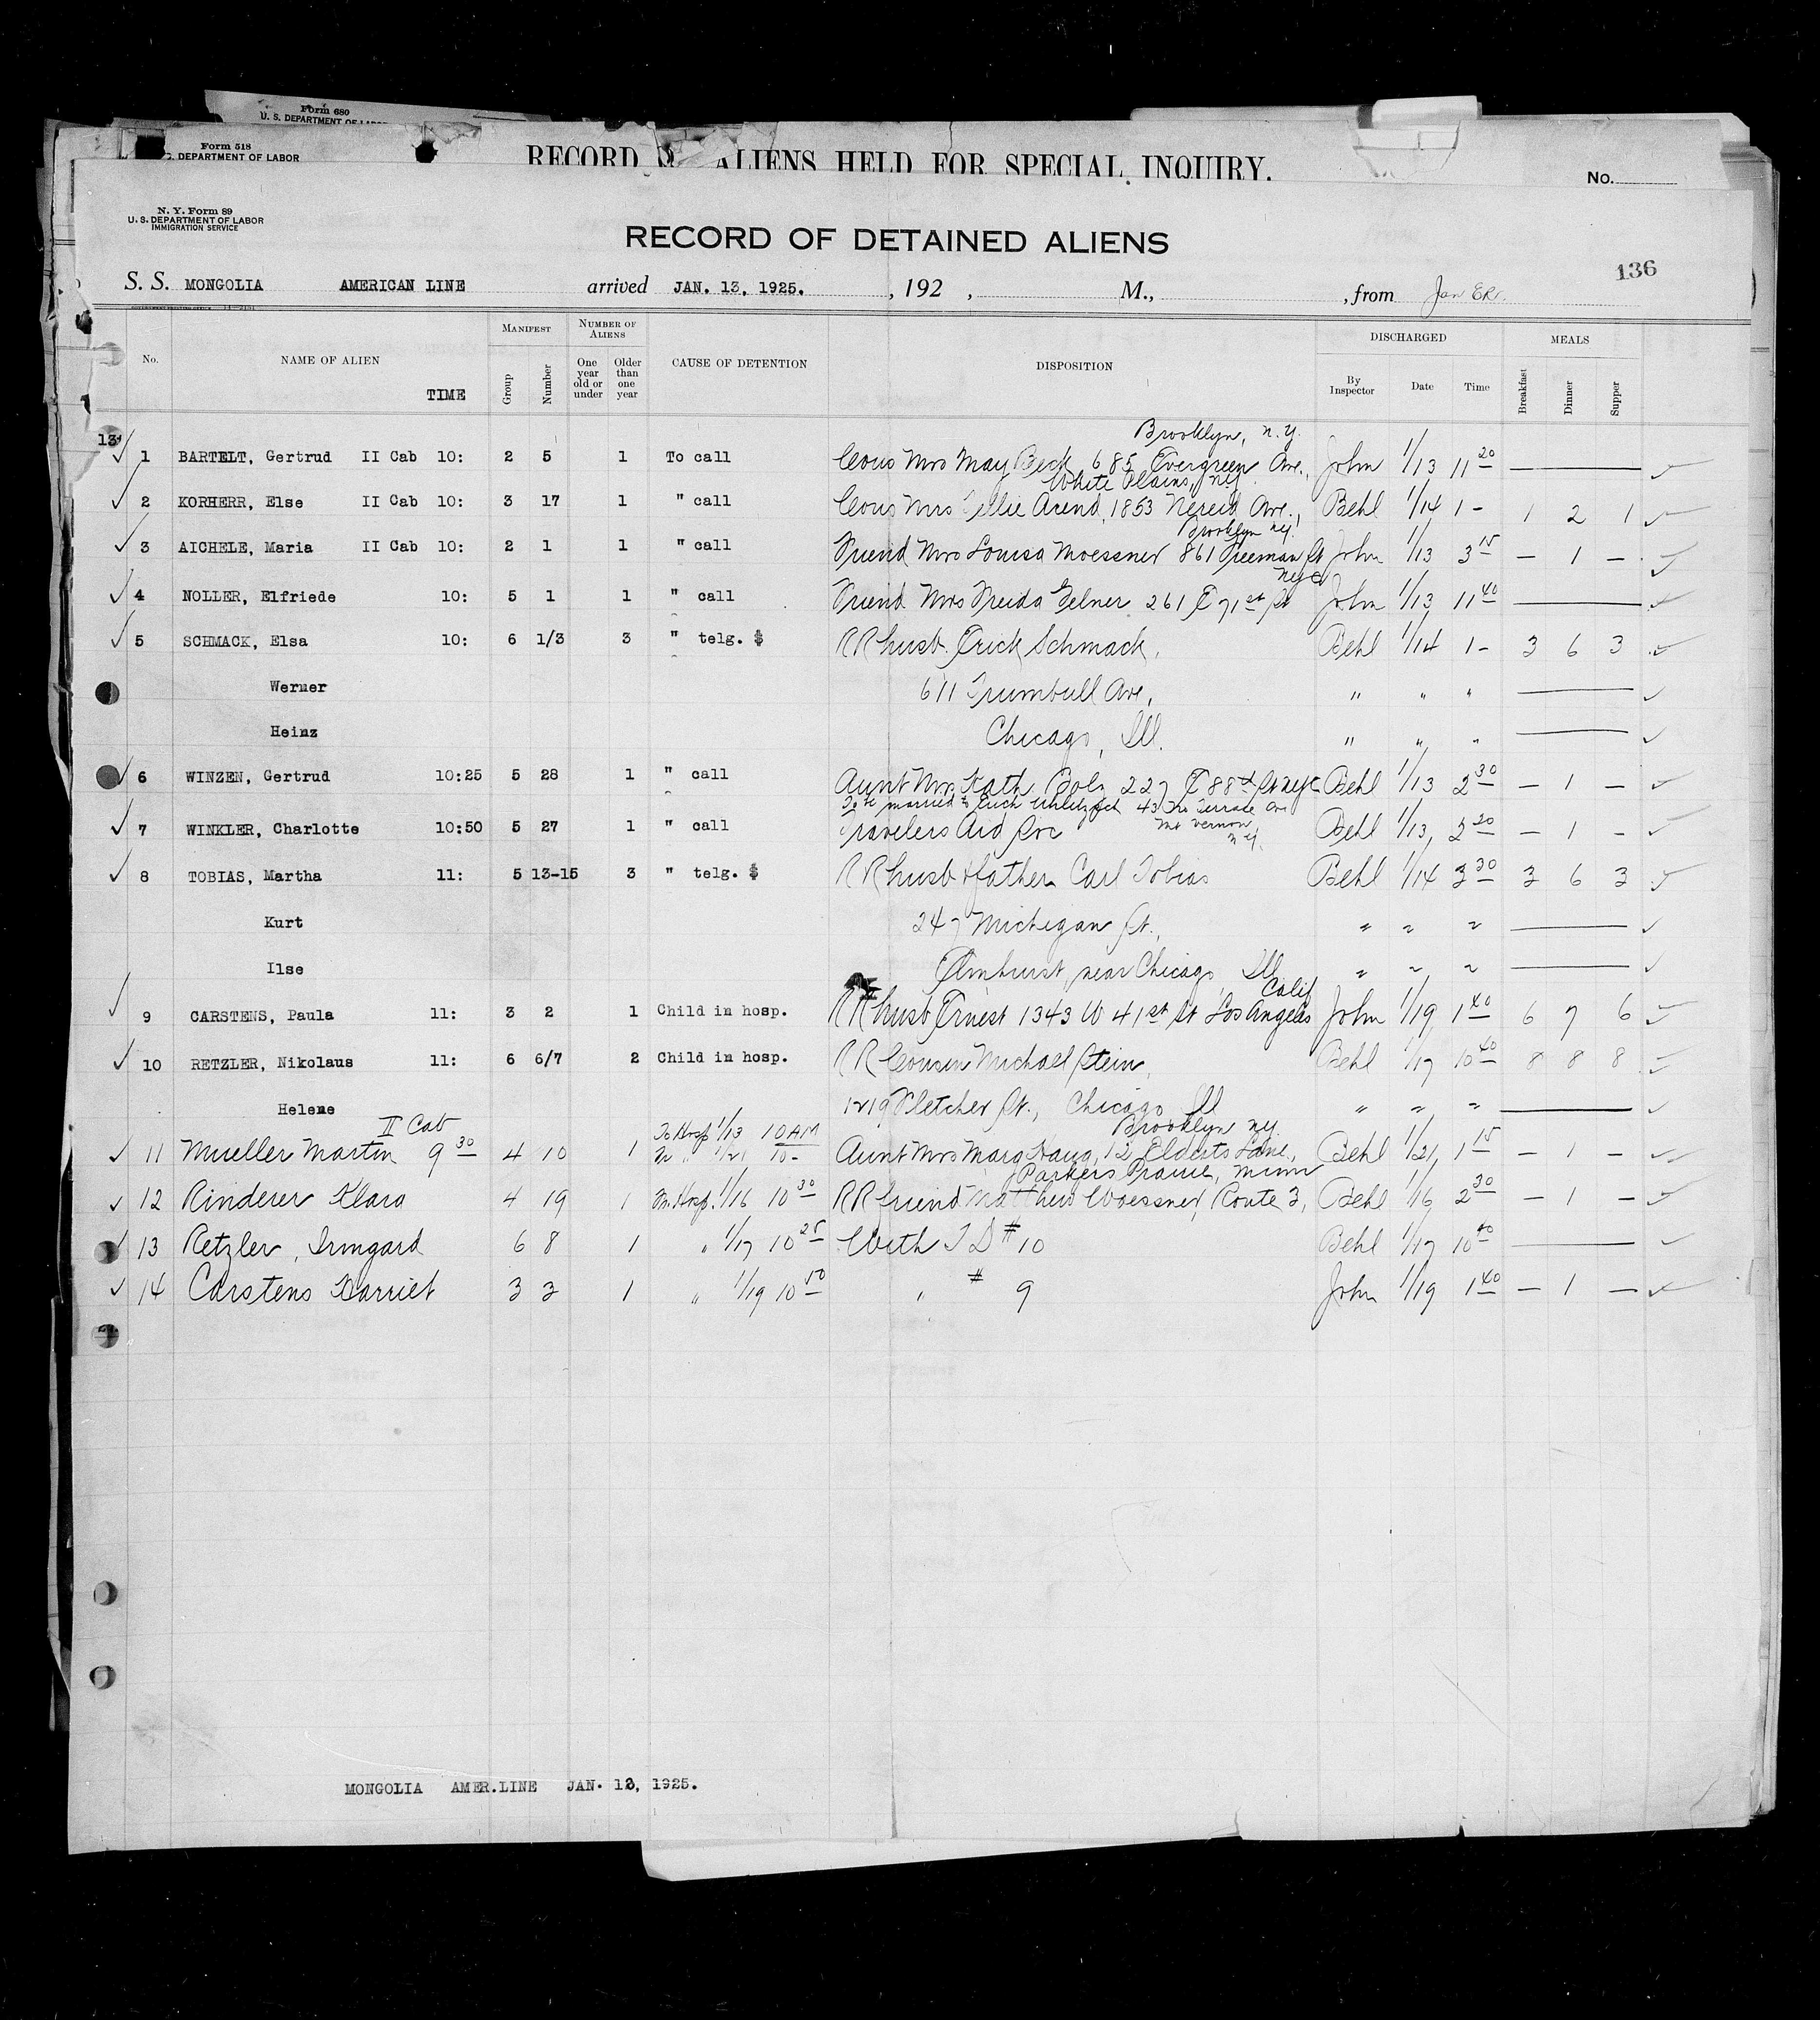 Form 680
U. S. DEPARTMENT OF LABOR
Form 518
DEPARTMENT OF LABOR
RECORD ALIENS HELD FOR SPECIAL INQUIRY.
No.
N. Y. Form 89
U. S. DEPARTMENT OF LABOR
IMMIGRATION SERVICE
RECORD OF DETAINED ALIENS
136
S. S. MONGOLIA AMERICAN LINE arrived JAN. 13, 1925. , 192 , M., , from
No. NAME OF ALIEN TIME MANIFEST Group Number NUMBER OF ALIENS One year old or under Older than one year CAUSE OF DETENTION DISPOSITION DISCHARGED By Inspector Date Time MEALS Breakfast Dinner Supper
13
Brooklyn, N.Y.
1 BARTELT, Gertrud II Cab 10: 2 5 1 To call Cous Mrs May Beck 685 Evergreen Ave., John 1/13 11 20
White Plains, NY
2 KORHERR, Else II Cab 10: 3 17 1 " call Cous Mrs Tillie Arend, 1853 Nereid Ave., Behl 1/14 1 - 1 2 1
Brooklyn NY.
3 AICHELE, Maria II Cab 10: 2 1 1 " call Friend Mrs Louisa Moessner 861 Freeman St John 1/13 3 15 - 1 -
NYC
4 NOLLER, Elfriede 10: 5 1 1 " call Friend Mrs Freida Gelner 261 E 71st St John 1/13 11 40
5 SCHMACK, Elsa 10: 6 1/3 3 " telg. $ RR husb. Erick Schmack, Behl 1/14 1 - 3 6 3
Werner 611 Trumbull Ave, " " "
Heinz Chicago, Ill. " " "
6 WINZEN, Gertrud 10:25 5 28 1 " call Aunt Mrs Kath Bolz 227 E 88th St NYC Behl 1/13 2 30 - 1 -
To be married to Erich 43 Terrace Ave
Mt Vernon
N.Y.
7 WINKLER, Charlotte 10:50 5 27 1 " call Travelers Aid Soc Behl 1/13, 2 20 - 1 -
8 TOBIAS, Martha 11: 5 13-15 3 " telg. $ RR husb & father Carl Tobias Behl 1/14 3 30 3 6 3
Kurt 247 Michigan St., " " "
Ilse Elmhurst, near Chicago, Ill " " "
Calif
9 CARSTENS, Paula 11: 3 2 1 Child in hosp. RR husb Ernest 1343 W 41st St Los Angeles John 1/19 1 40 6 7 6
10 RETZLER, Nikolaus 11: 6 6/7 2 Child in hosp. RR Cousin Michael Stein, Behl 1/17 10 40 8 8 8
Helene 1219 Fletcher St., Chicago Ill " " "
II Cab To Hosp 1/13 10 AM Brooklyn NY.
11 Mueller Martin 9 30 4 10 1 " 1/21 10- Aunt Mrs Marg Haug, 12 Elderts Lane, Behl 1/21, 1 15 - 1 -
Parkers Prairie, Minn
12 Rinderer Klara 4 19 1 Hosp. 1/16 10 30 RR friend Matthew Woessner, Route 3, Behl 1/16 2 30 - 1 -
13 Retzler, Irmgard 6 8 1 " 1/17 10 25 With TD # 10 Behl 1/17 10 40
14 Carstens Harriet 3 3 1 " 1/19 10 50 " # 9 John 1/19 1 40 - 1 -
MONGOLIA AMER.LINE JAN. 13, 1925.